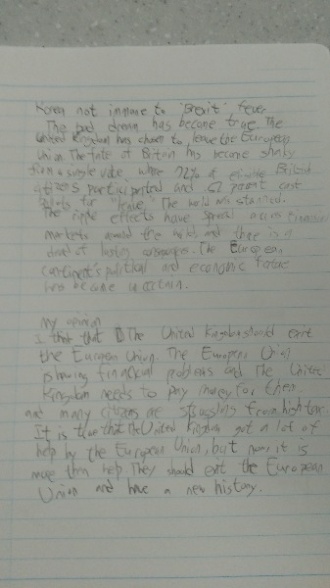 Korea not immune to 'Brexit' fever
The bad dream has become true. The
United Kingdom has chosen to leave the European
Union. The fate of Britain has become shaky
from a single vote, where 72% of Britain
citizens participated and 52 percent cast
ballots for "leave". The world was stunned.
The ripple effects have spread across financial
markets around the world and there is a
dread of lasting. The European
continent's political and economic future
has become uncertain.
My opinion
I think that The United Kingdom should exit
the European Union. The European Union
is having financial problems and The United
Kingdom needs to pay money for them
and many citizens are struggling from high tax.
It is true that the United Kingdom got a lot of
help by the European Union, but now, it is
more than help. They should exit the European
Union and have a new history.